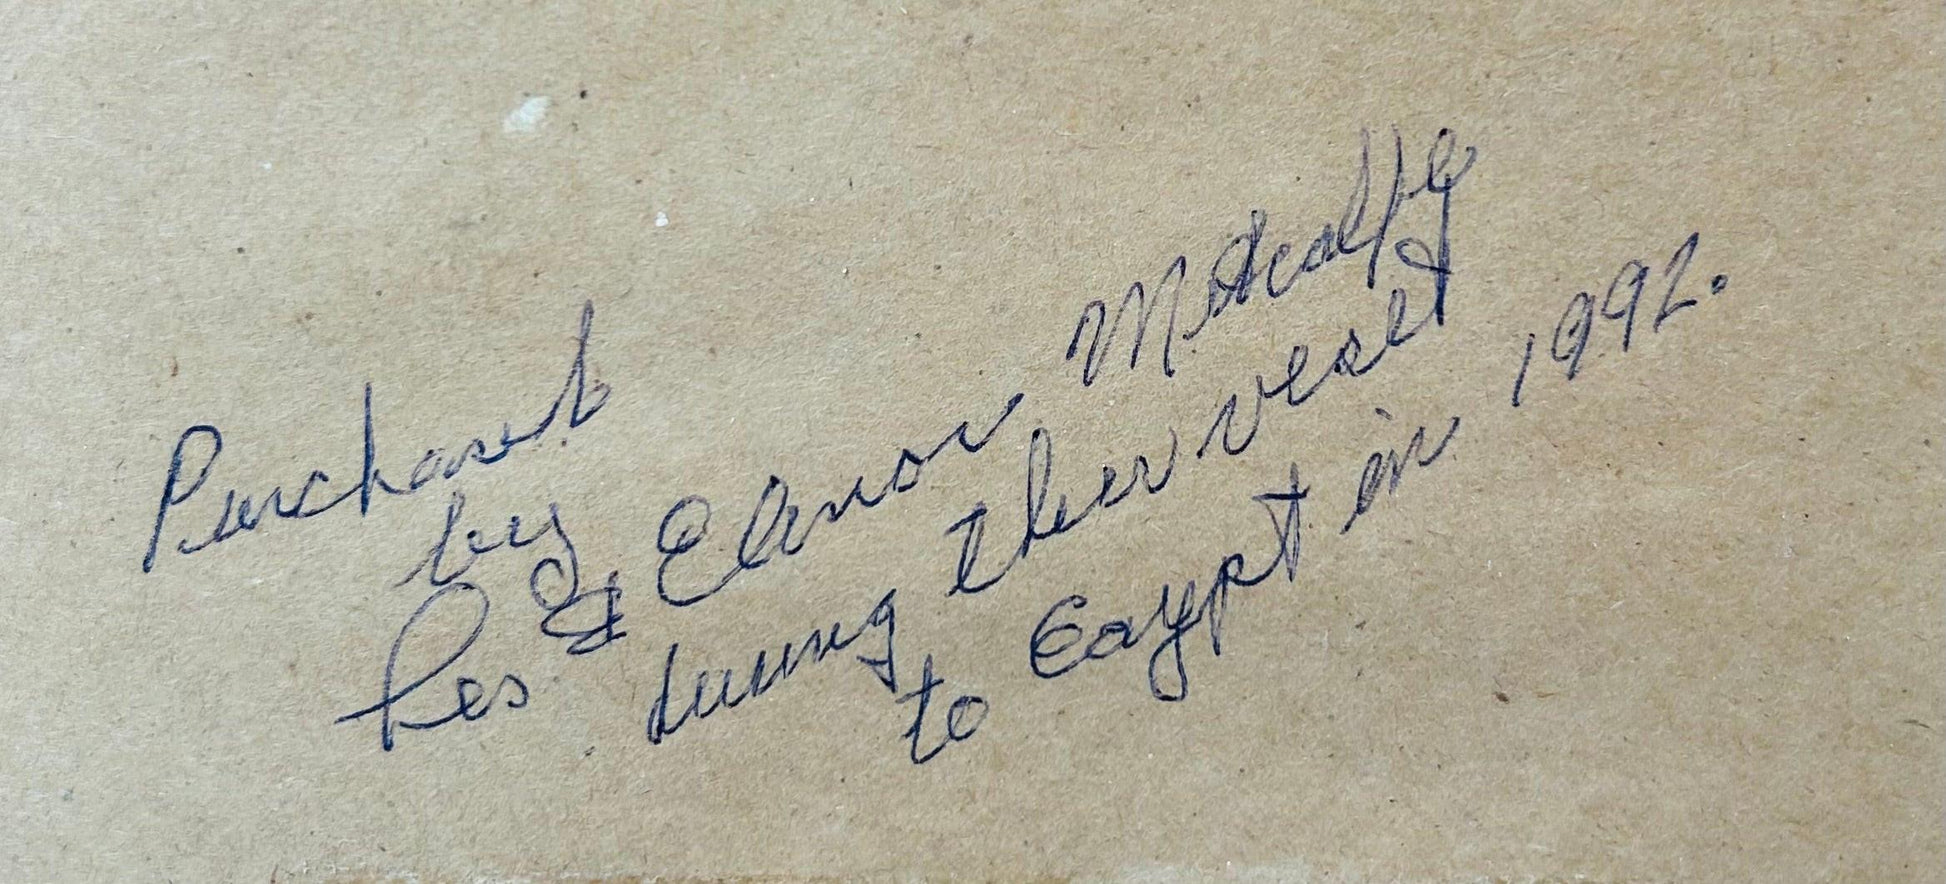 Purchased
by
Les & Elenor Metcalfe
during their visit
to Egypt in 1992.